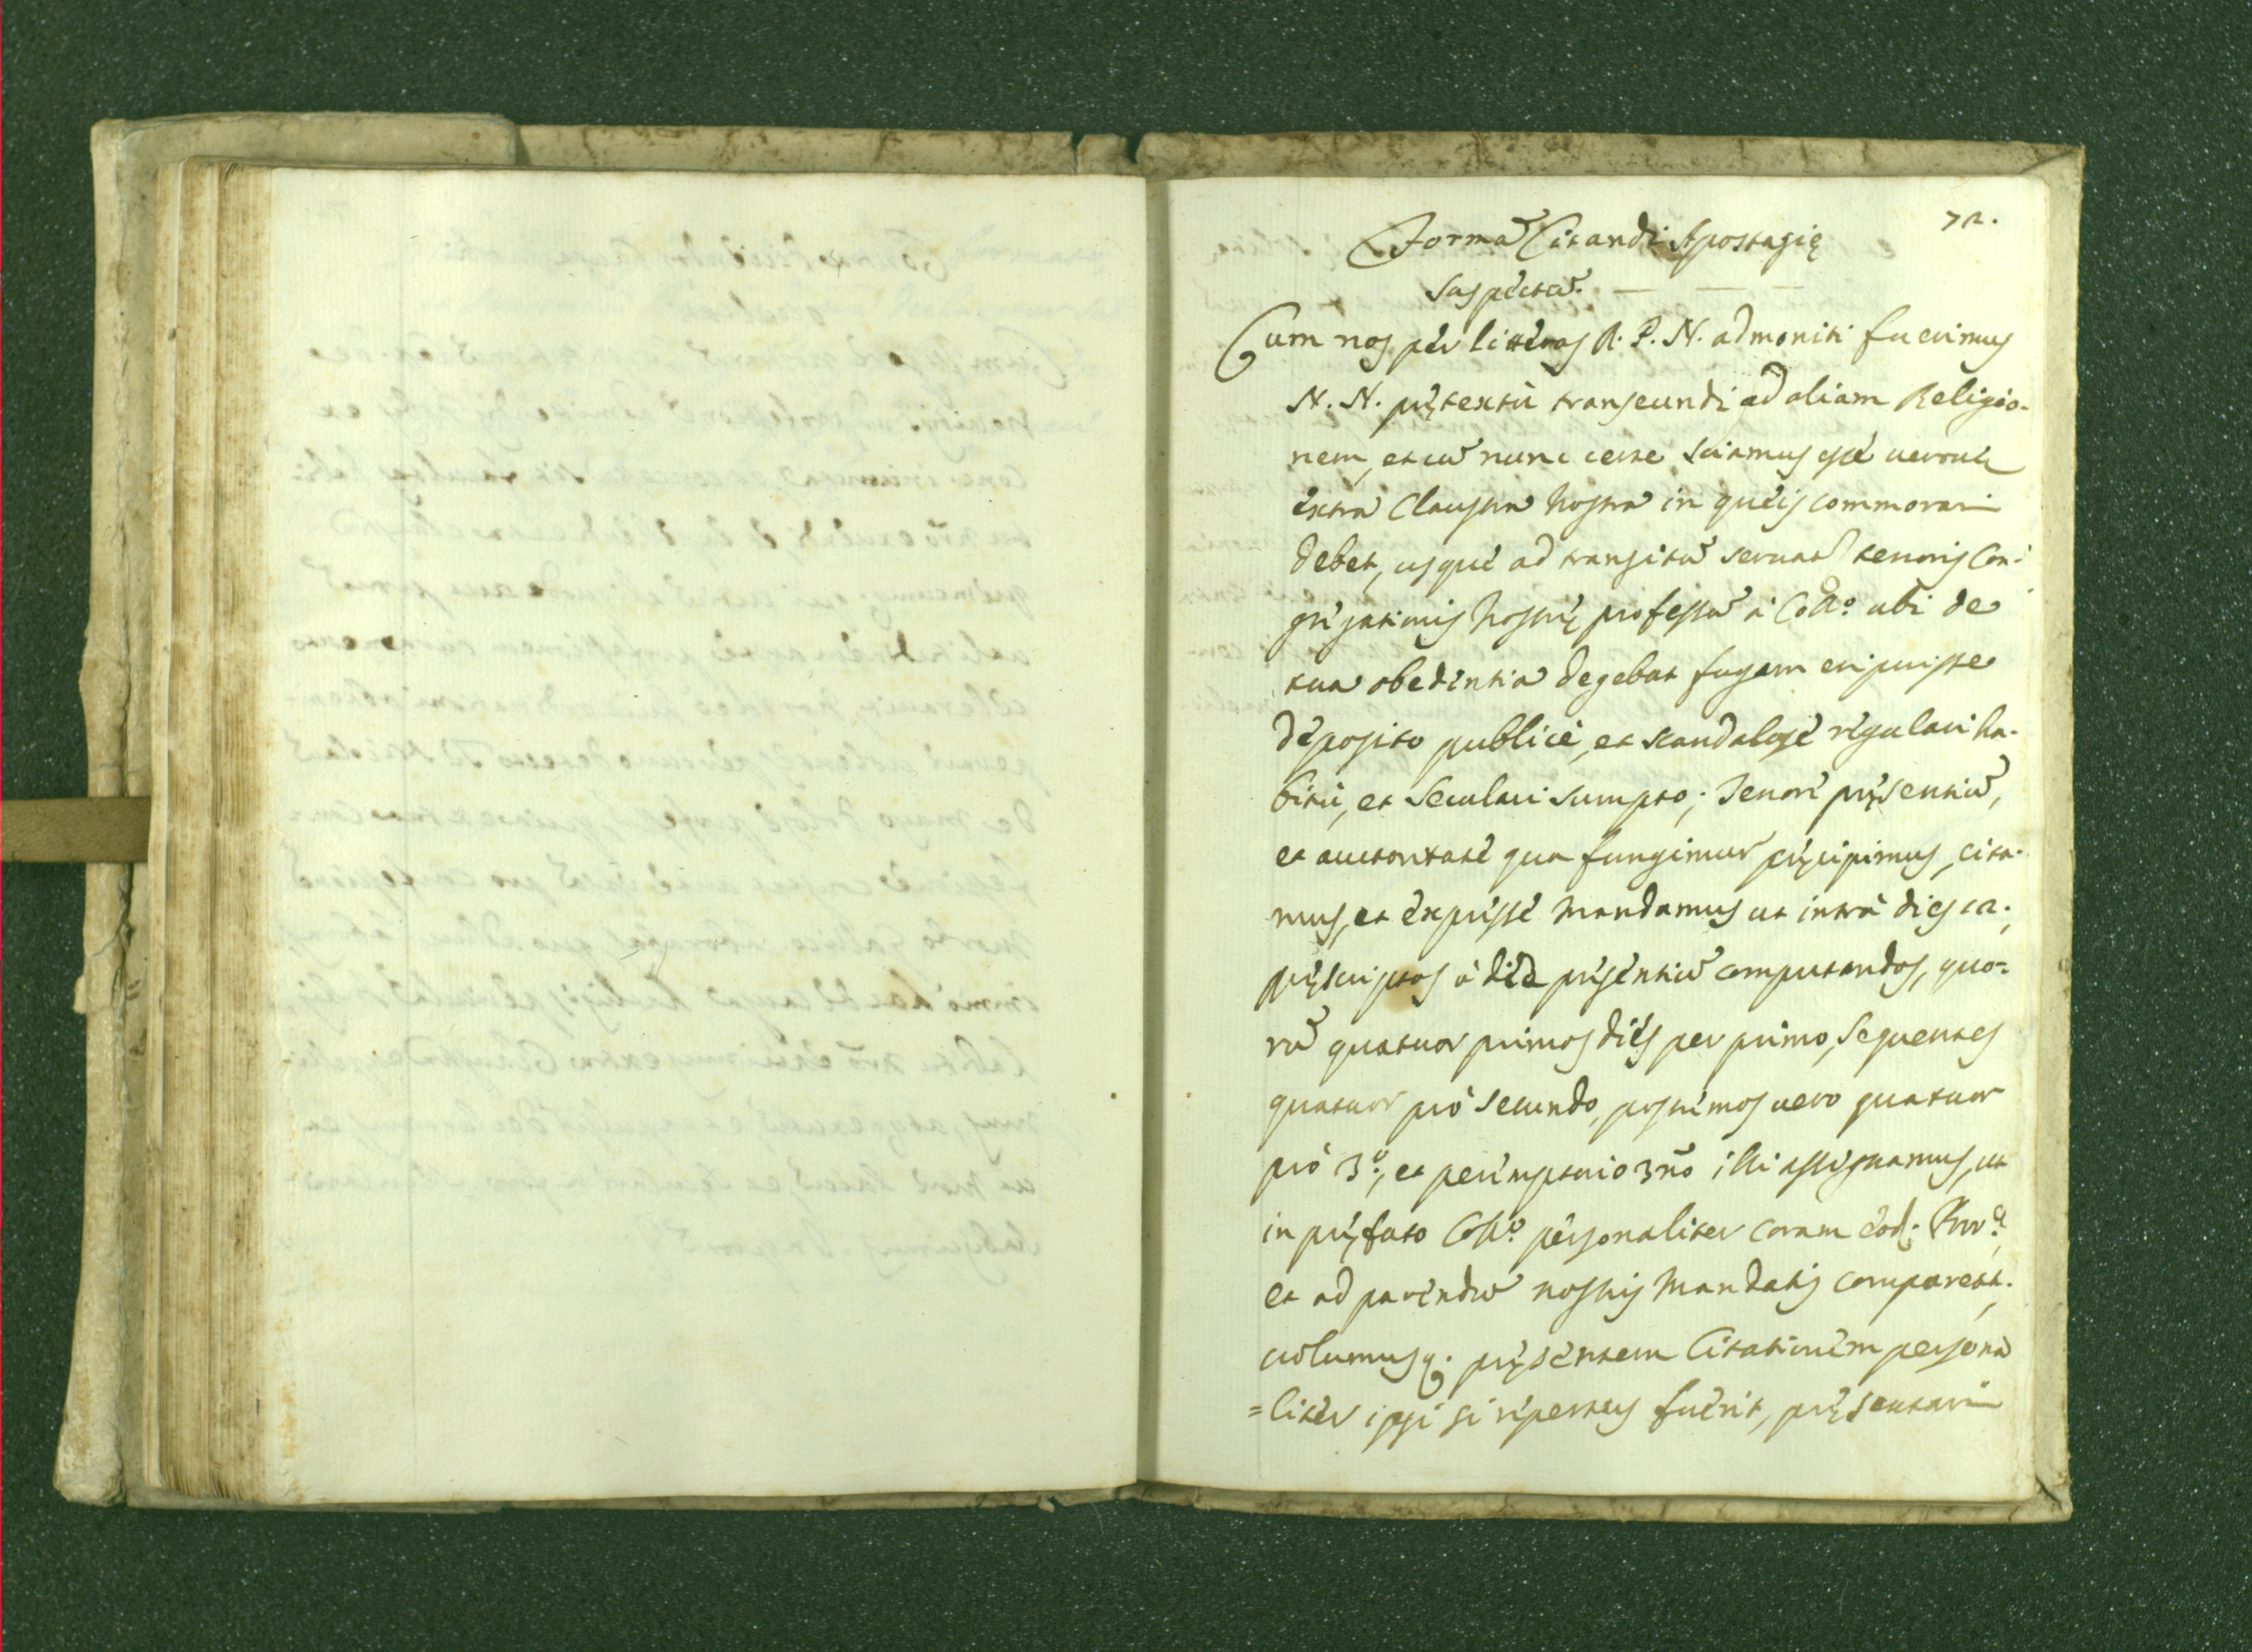 72.
Forma Citandi Apostasię
suspectũ.
Cum nos per litteras R. P. N. admoniti fuerimus
N. N. prętextu transeundi ad aliam Religio-
nem, et cũ nunc certe sciamus esse
extra Claustra nostra in queis commorari
debet, usque ad transitũ tenoris Con-
gregationis nostrę professũ à Collo. ubi de
tua obedentia degebat fugam eripuisse
deposito publice, et scandalose regulari ha-
bitu, et Seculari sumpto; Tenore pręsentiũ,
et auctoritate qua fungimur pręcipimus, cita-
mus, et expresse mandamus ut intrà dies 12.,
pręscriptos à die presentiũ computandos, quo-
rũ quatuor primos dies per primo, sequentes
quatuor pro secundo, postremos uero quatuor
prò 3o., et peremptorio illi assignamus, ut
in pręfato Collo. personaliter coram eod.
et ad parendũ nostris mandatis comparest.
uolumusq. pręsentem Citationem persona
=liter ipsi si repertus fuerit, pręsentari